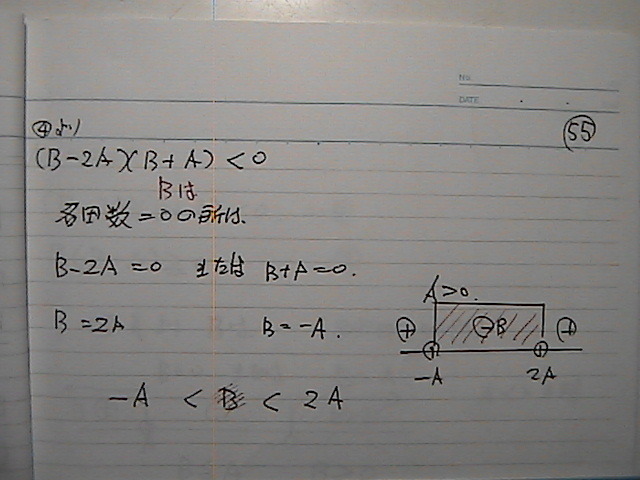 No.
DATE
④より
55
(B-2A)(B+A)<0
Bは
各因数=0の所は、
B-2A=0 または B+A=0.
B=2A B=-A.
A>0.
+ - B +
-A 2A
-A < B < 2A